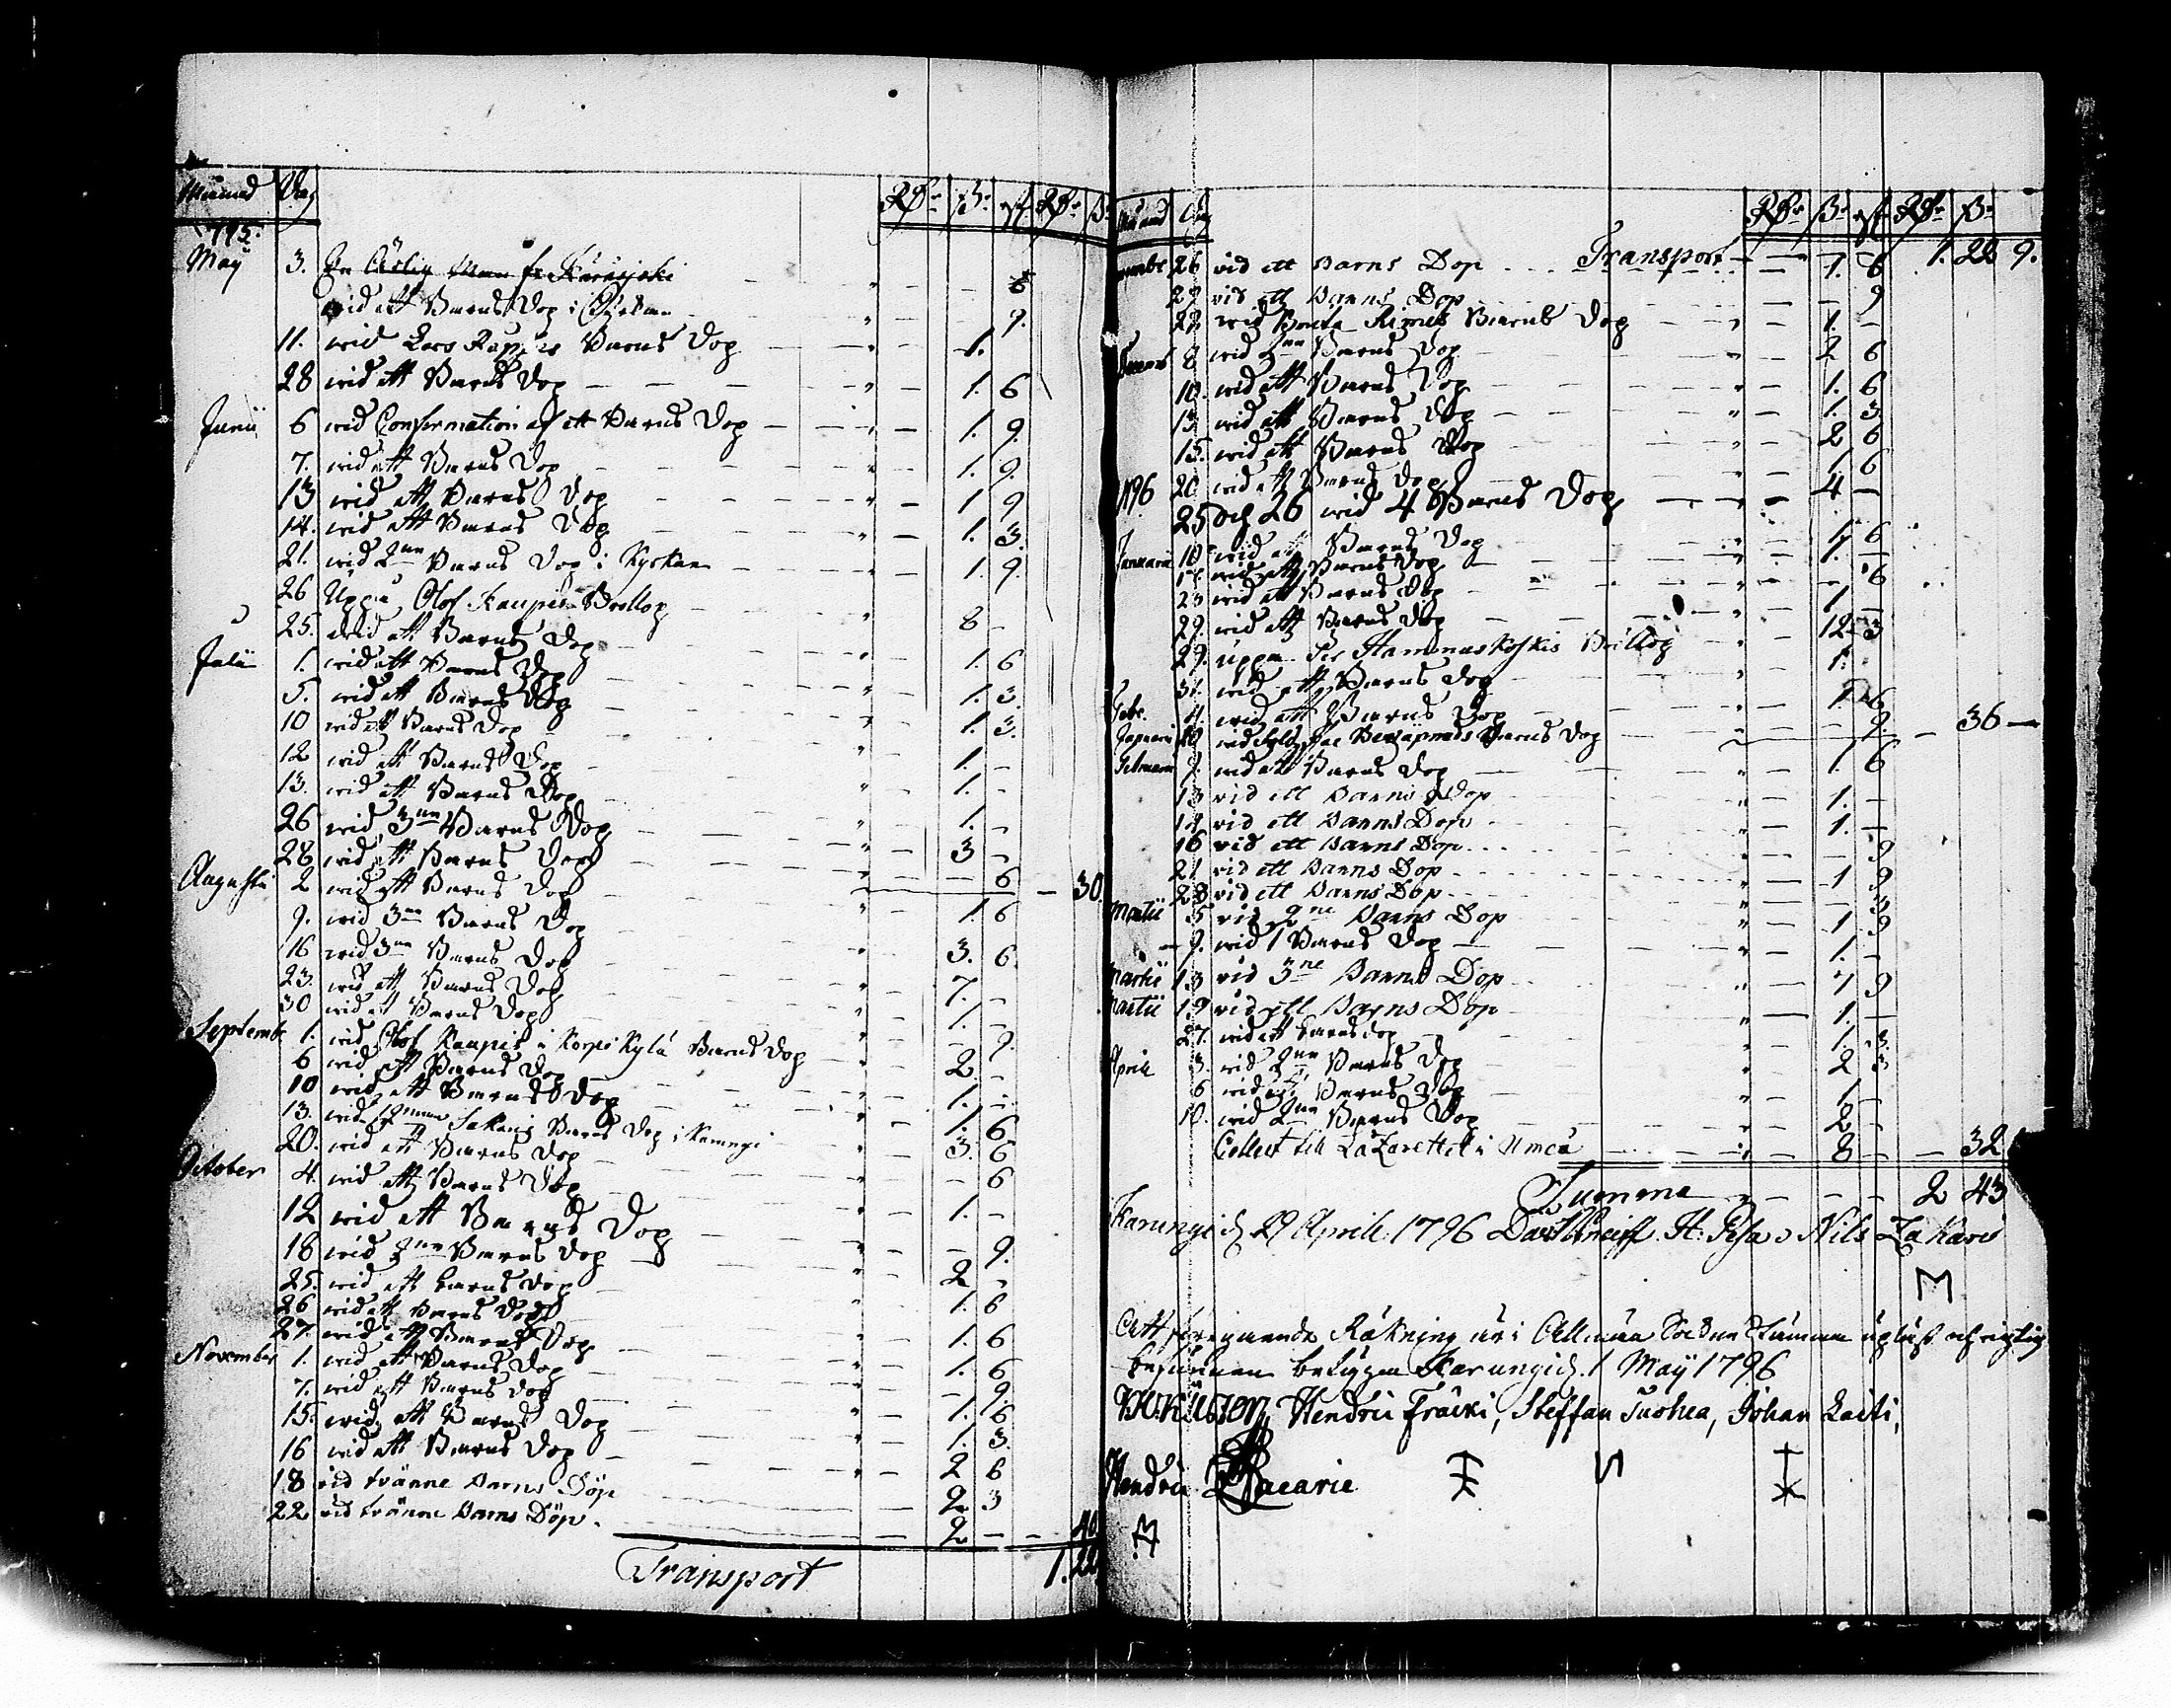 Månad Dag Rdr ß. rst Rdr ß.
1795.
May 3. En Ärlig Man fr
wid ett Barns Dop i - 9.
11. wid Lars Barns Dop 1.
28 wid ett Barns Dop 1. 6
Junii 6 wid Confirmation af ett Barns Dop 1. 9.
7. wid ett Barns Dop 1. 9.
13 wid ett Barns Dop 1 9
14. wid ett Barns Dop 1. 3.
21. wid 2ne Barns Dop i Kyrkan 1. 9.
26 Uppå Olof Kaupis Bröllop 8 -
25. wid ett Barns Dop 1. 6
Julii 1. wid ett Barns Dop 1. 3.
5. wid ett Barns Dop 1. 3.
10 wid ett Barns Dop 1. -
12 wid ett Barns Dop 1. -
13. wid ett Barns Dop 1. -
26 wid 3ne Barns Dop 3 -
28 wid ett Barns Dop - 6 - 30.
Augusti 2 wid ett Barns Dop 1. 6
9. wid 3ne Barns Dop 3. 6.
16 wid 3ne Barns Dop 7. -
23. wid ett Barns Dop 1. -
30 wid ett Barns Dop - 9.
Septemb. 1. wid Olof Kaupis i Korpikylä Barns Dop 2. -
6 wid ett Barns Dop 1. -
10 wid ett Barns Dop 1. 6
13. wid Barns Dop i Karungi 3. 6
20. wid ett Barns Dop - 6
October 4. wid ett Barns Dop 1. -
12 wid ett Barns Dop - 9.
18 wid 2ne Barns Dop 2 -
25. wid ett barns Dop 1. 6
26 wid ett Barns Dop 1. 6
27. wid ett Barns Dop 1. 6
November 1. wid ett Barns Dop - 9.
7. wid ett Barns Dop 1. 6
15. wid ett Barns Dop 1. 3.
16 wid ett Barns Dop 2 6
18 vid tvänne Barns Döp 2 3
22 vid tvänne Barns Döp. 2 - - 40
Transport 1. 22
Månad Dag Rdr ß. rst Rdr ß.
26 vid ett Barns Dop Transport 1. 6 1. 22 9.
27 vid ett Barns Dop - 9
29 wid Barns Dop 1. -
8 wid 2ne Barns Dop 2 6
10. wid ett Barns Dop 1. 6
13 wid ett Barns Dop 1. 3.
15. wid ett Barns Dop 2 6
20 wid ett Barns Dop 1 6
1796 25 och 26 wid 4 Barns Dop 4 -
Januarii 10 wid ett Barns Dop 1. 6
wid ett Barns Dop 1. -
23 wid ett Barns Dop - 6
29. wid ett Barns Dop 1 -
29. uppå Per Hammaskoskis Bröllop 12 3
31. wid ett Barns Dop 1.
Febr. wid ett Barns Dop 1. 6
Januarii wid Barns Dop - 9. - 36 -
Februarii 9. wid ett Barns Dop 1. 6
13 vid ett Barns Dop 1. -
14 vid ett Barns Dop 1. -
16 vid ett Barns Dop - 9
21 vid ett Barns Dop 1 9
28 vid ett Barns Dop - 3
Martii 5 vid 2ne Barns Dop 1 9
9. wid 1 Barns Dop 1. -
Martii 13 vid 3ne Barns Dop 7 9
Martii 19 vid ett Barns Dop 1. -
27. wid ett barns dop 1. 3.
Aprill 3. wid 2ne Barns Dop 2 3
6 wid ett Barns Dop 1 -
10. wid 2ne Barns Dop 2 -
Collect till Lazarettet i Umeå 8 - - 32
Summa 2 43
Karungi d. 29 Aprill 1796 Nils Zakari
Att föregående Räkning är i Allmän Sockne Stämma upläst och rigtig
befunnen betygar Karungi d. 1 May 1796
Hendric Fräcki, Steffan Tuohea, Johan Laiti,
Hendric Zacarie